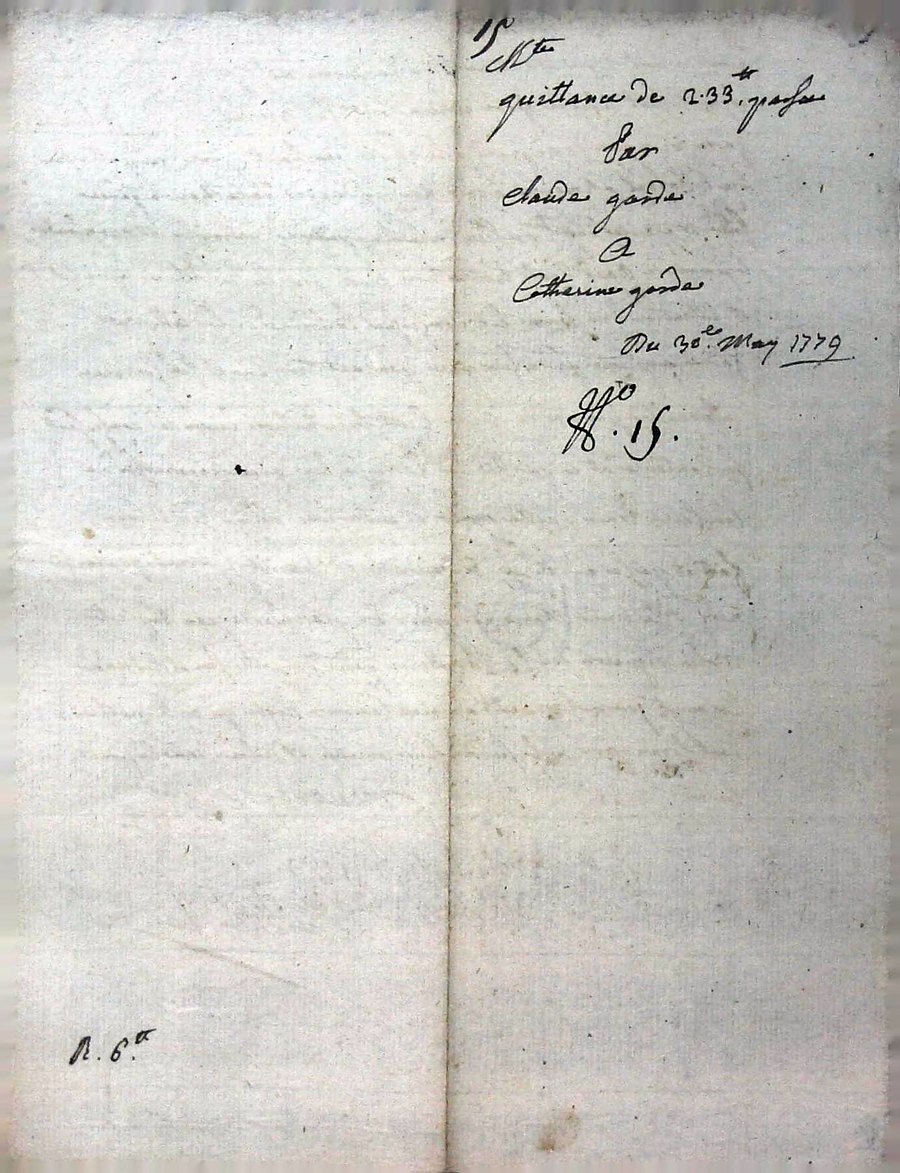 15
quittance de 233.tt passée
Par
Claude garde
A
Catherine garde
Du 30e. May 1779
No. 15.
R. 6.tt